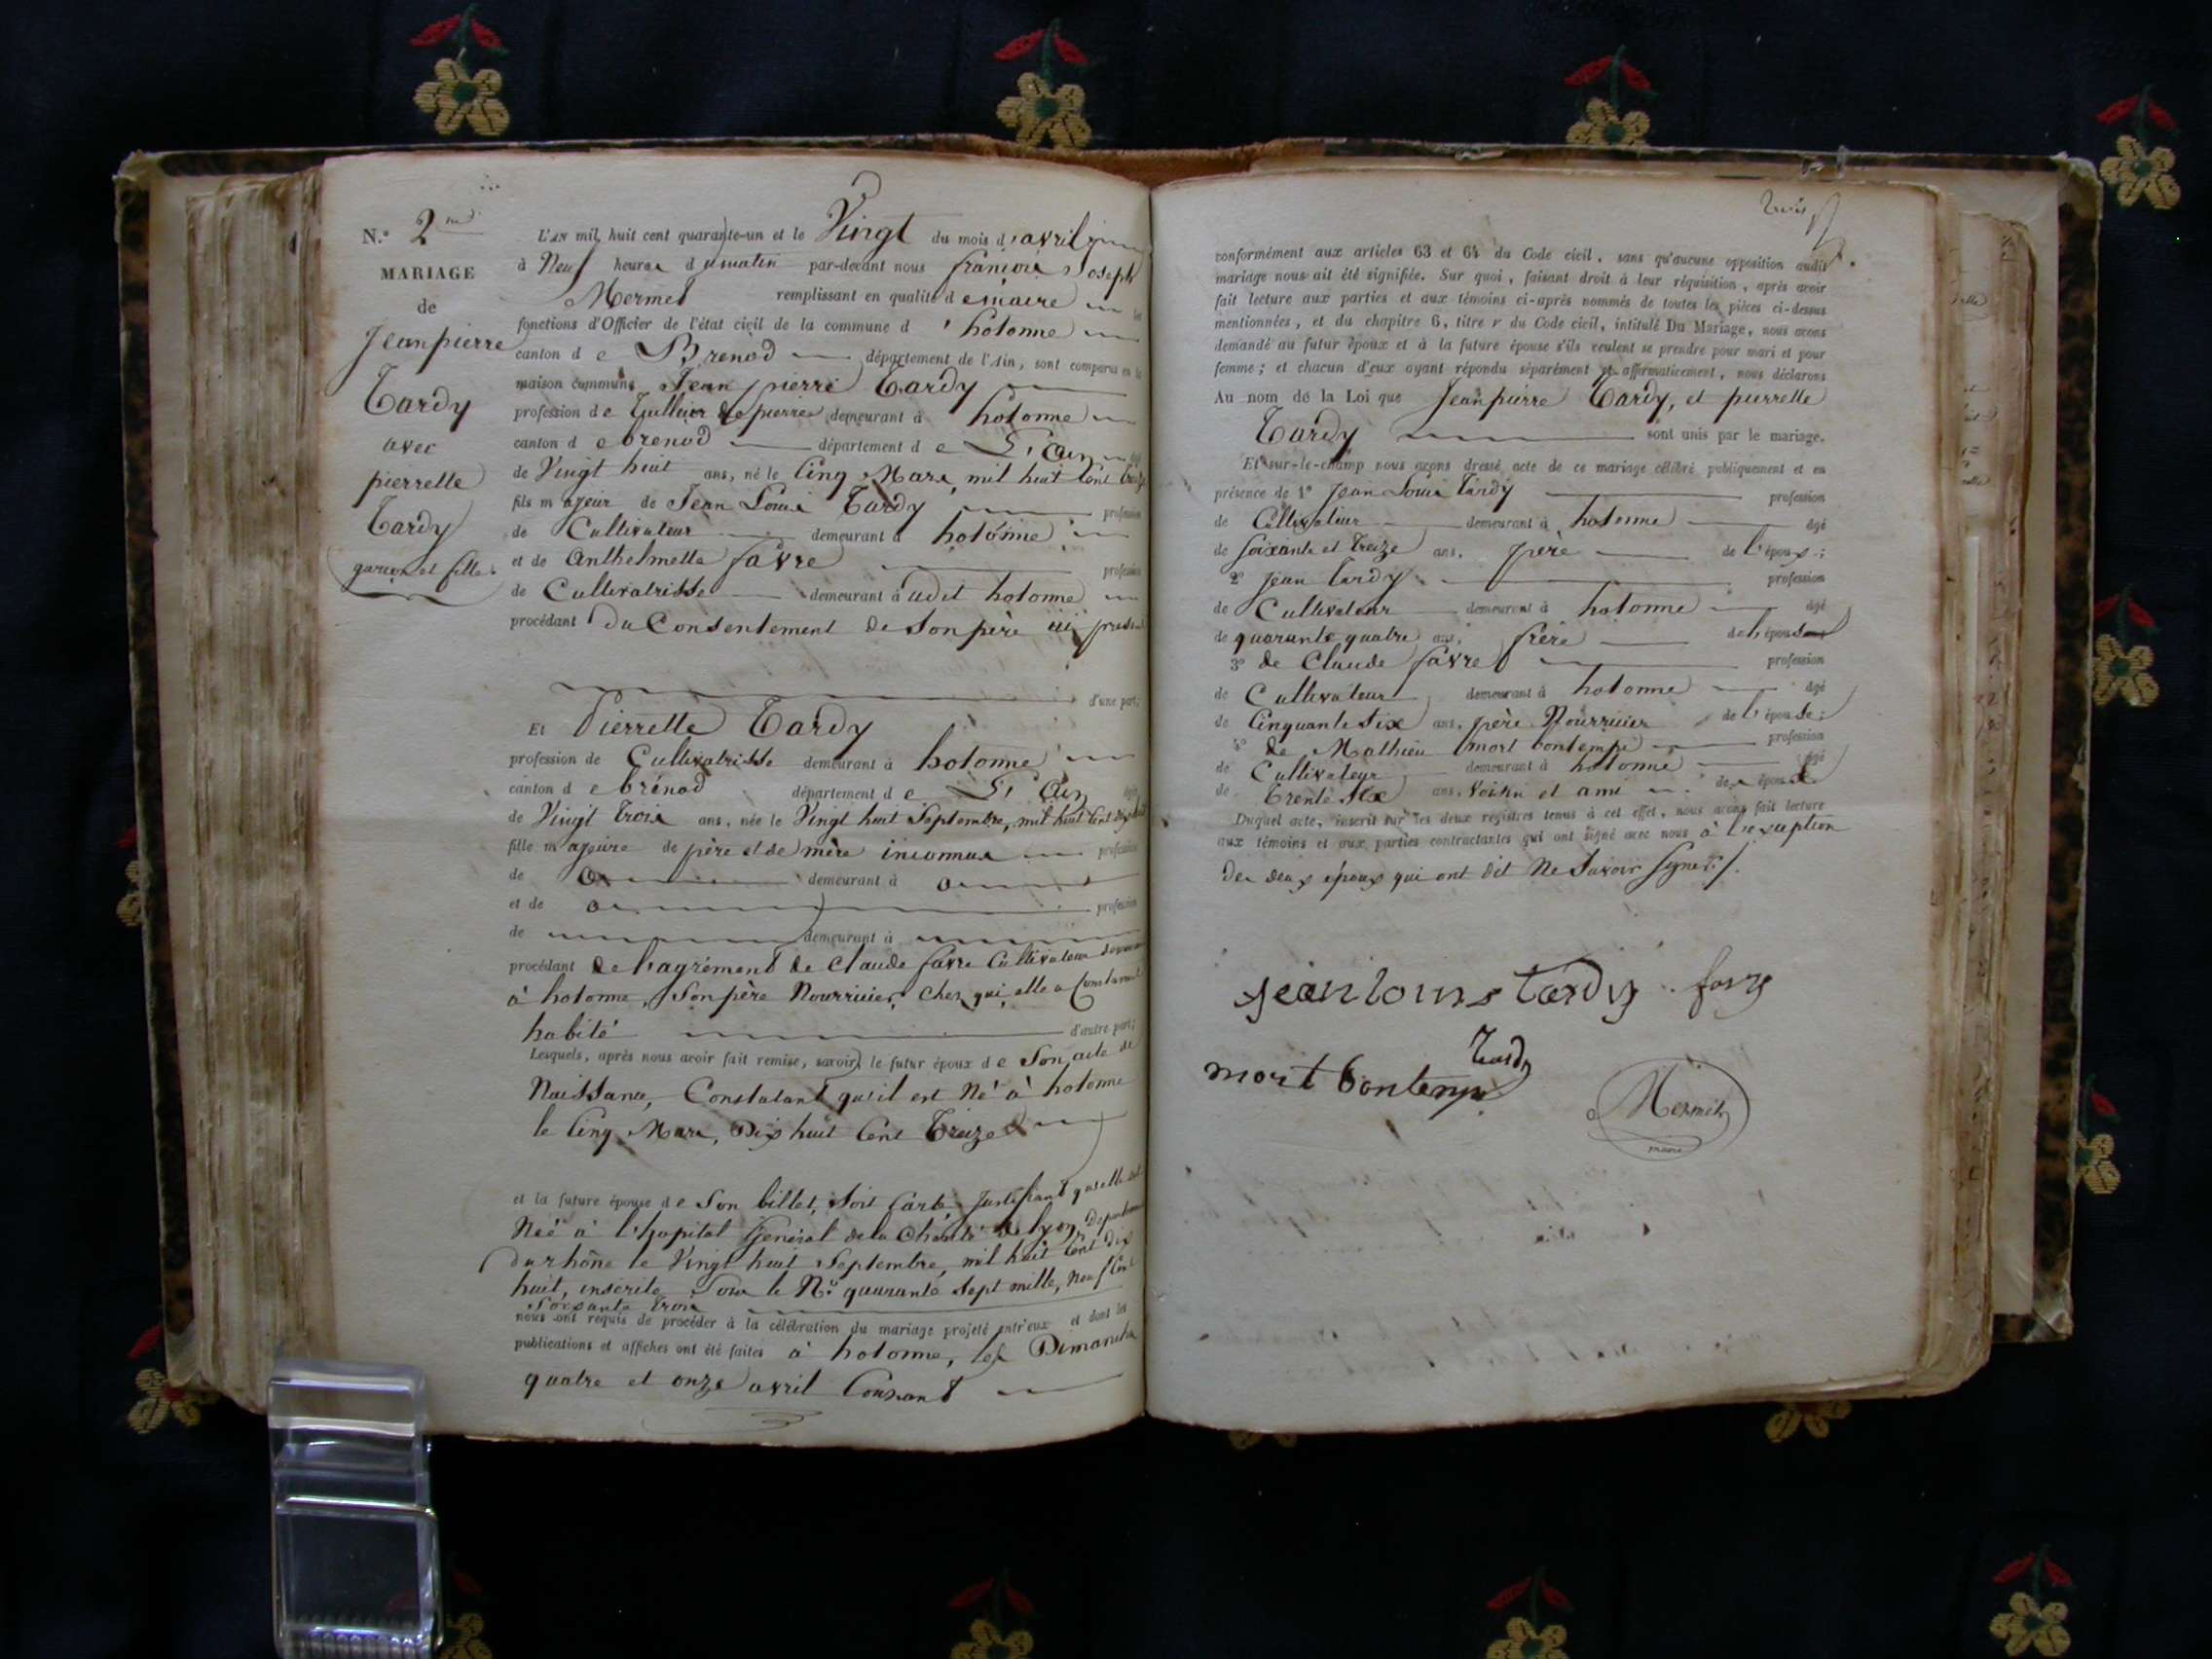 N.º 2me
MARIAGE
de
Jean pierre
Tardy
avec
pierrette
Tardy
garçon et fille.
L'AN mil huit cent quarante-un et le Vingt du mois d'avril
à Neuf heures du matin par-devant nous françois Joseph
Mermet remplissant en qualité de maire les
fonctions d'Officier de l'état civil de la commune d'hotonne
canton de Brenod département de l'Ain, sont comparus en la
maison commune Jean pierre Tardy
profession de Tailleur de pierre demeurant à hotonne
canton de brenod département de L'Ain âgé
de Vingt huit ans, né le Cinq Mars, mil huit Cent treize
fils majeur de Jean Louis Tardy profession
de Cultivateur demeurant à hotonne
et de Anthelmette favre profession
de Cultivatrisse demeurant audit hotonne
procédant du Consentement de Son père ici présent
d'une part;
Et Pierrette Tardy
profession de Cultivatrisse demeurant à hotonne
canton de brénod département de L'Ain âgée
de Vingt trois ans, née le Vingt huit Septembre, mil huit Cent dix huit
fille majeure de père et de mère inconnus profession
de demeurant à
et de profession
de demeurant à
procédant de l'agrément de Claude favre Cultivateur demeurant
à hotonne, Son père Nourricier, chez qui elle a Constament
habité d'autre part;
Lesquels, après nous avoir fait remise, savoir, le futur époux de Son acte de
Naissance, Constatant qu'il est Né à hotonne
le Cinq Mars, Dix huit Cent Treize
et la future épouse de Son billet, Soit Carte, Justifiant qu'elle est
Née à l'hopital Général de la Charité de lyon, Département
du rhône le Vingt huit Septembre, mil huit Cent dix
huit, inscrite Sous le N.º quarante Sept mille, Neuf Cent
Soixante trois
nous ont requis de procéder à la célébration du mariage projeté entr'eux et dont les
publications et affiches ont été faites à hotonne, les Dimanches
quatre et onze avril Courant
conformément aux articles 63 et 64 du Code civil, sans qu'aucune opposition audit
mariage nous ait été signifiée. Sur quoi, faisant droit à leur réquisition, après avoir
fait lecture aux parties et aux témoins ci-après nommés de toutes les pièces ci-dessus
mentionnées, et du chapitre 6, titre v du Code civil, intitulé Du Mariage, nous avons
demandé au futur époux et à la future épouse s'ils veulent se prendre pour mari et pour
femme; et chacun d'eux ayant répondu séparément et affirmativement, nous déclarons
Au nom de la Loi que Jean pierre Tardy, et pierrette
Tardy sont unis par le mariage.
Et sur-le-champ nous avons dressé acte de ce mariage célébré publiquement et en
présence de 1º Jean Louis Tardy profession
de Cultivateur demeurant à hotonne âgé
de soixante et treize ans, père de l'époux;
2º Jean Tardy profession
de Cultivateur demeurant à hotonne âgé
de quarante quatre ans, frère de l'époux
3º de Claude favre profession
de Cultivateur demeurant à hotonne âgé
de Cinquante Six ans, père Nourricier de l'épouse;
4º de Mathieu mort bontemps profession
de Cultivateur demeurant à hotonne âgé
de Trente Six ans, Voisin et ami de l'époux
Duquel acte, inscrit sur les deux registres tenus à cet effet, nous avons fait lecture
aux témoins et aux parties contractantes qui ont signé avec nous à l'exception
des deux époux qui ont dit Ne Savoir Signer ./.
jean louis tardy favre
Tardy
mort bontemp
Mermet
maire